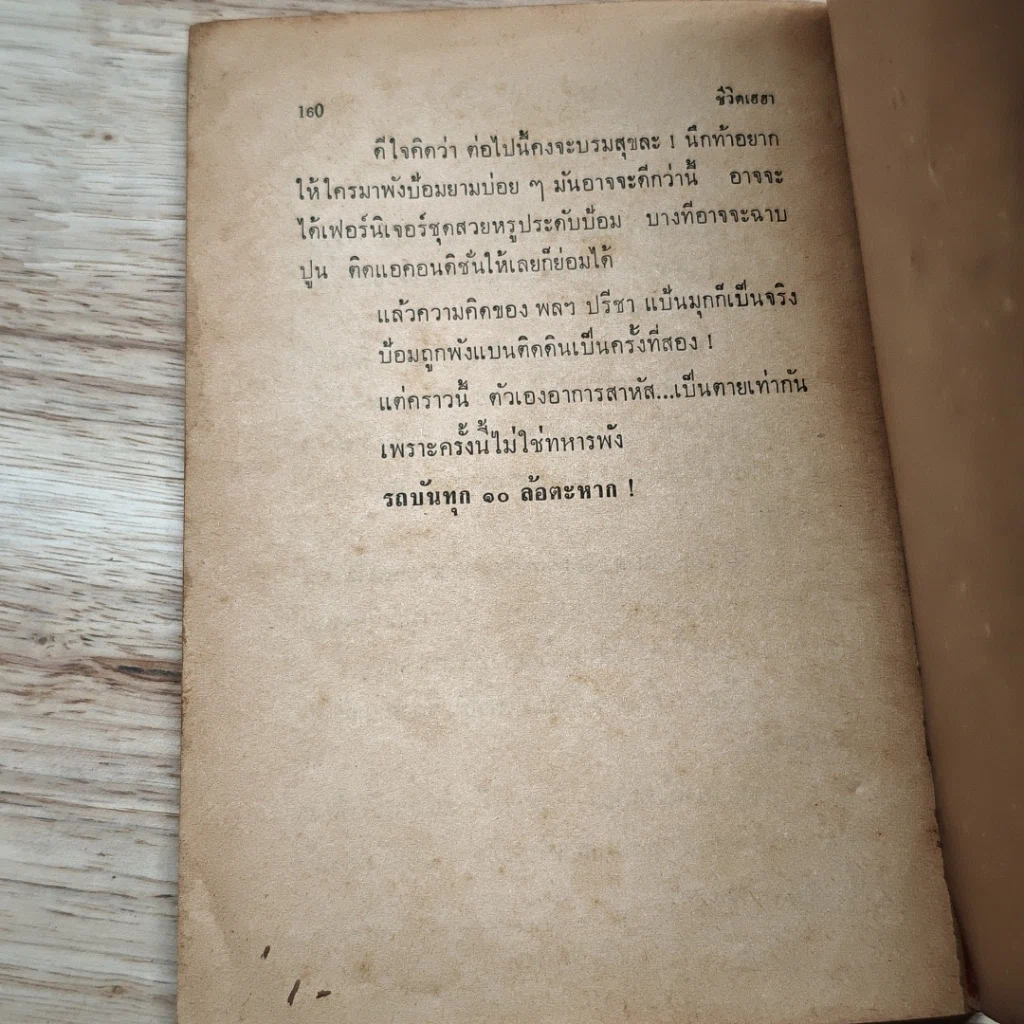 160
ชีวิตเฮฮา
ดีใจคิดว่า ต่อไปนี้คงจะบรมสุขละ ! นึกท้าอยาก
ให้ใครมาพังป้อมยามบ่อย ๆ มันอาจจะดีกว่านี้ อาจจะ
ได้เฟอร์นิเจอร์ชุดสวยหรูประดับป้อม บางทีอาจจะฉาบ
ปูน ติดแอคอนดิชั่นให้เลยก็ย่อมได้
แล้วความคิดของ พลฯ ปรีชา แป้นมุกก็เป็นจริง
ป้อมถูกพังแบนติดดินเป็นครั้งที่สอง !
แต่คราวนี้ ตัวเองอาการสาหัส...เป็นตายเท่ากัน
เพราะครั้งนี้ไม่ใช่ทหารพัง
รถบันทุก ๑๐ ล้อตะหาก !